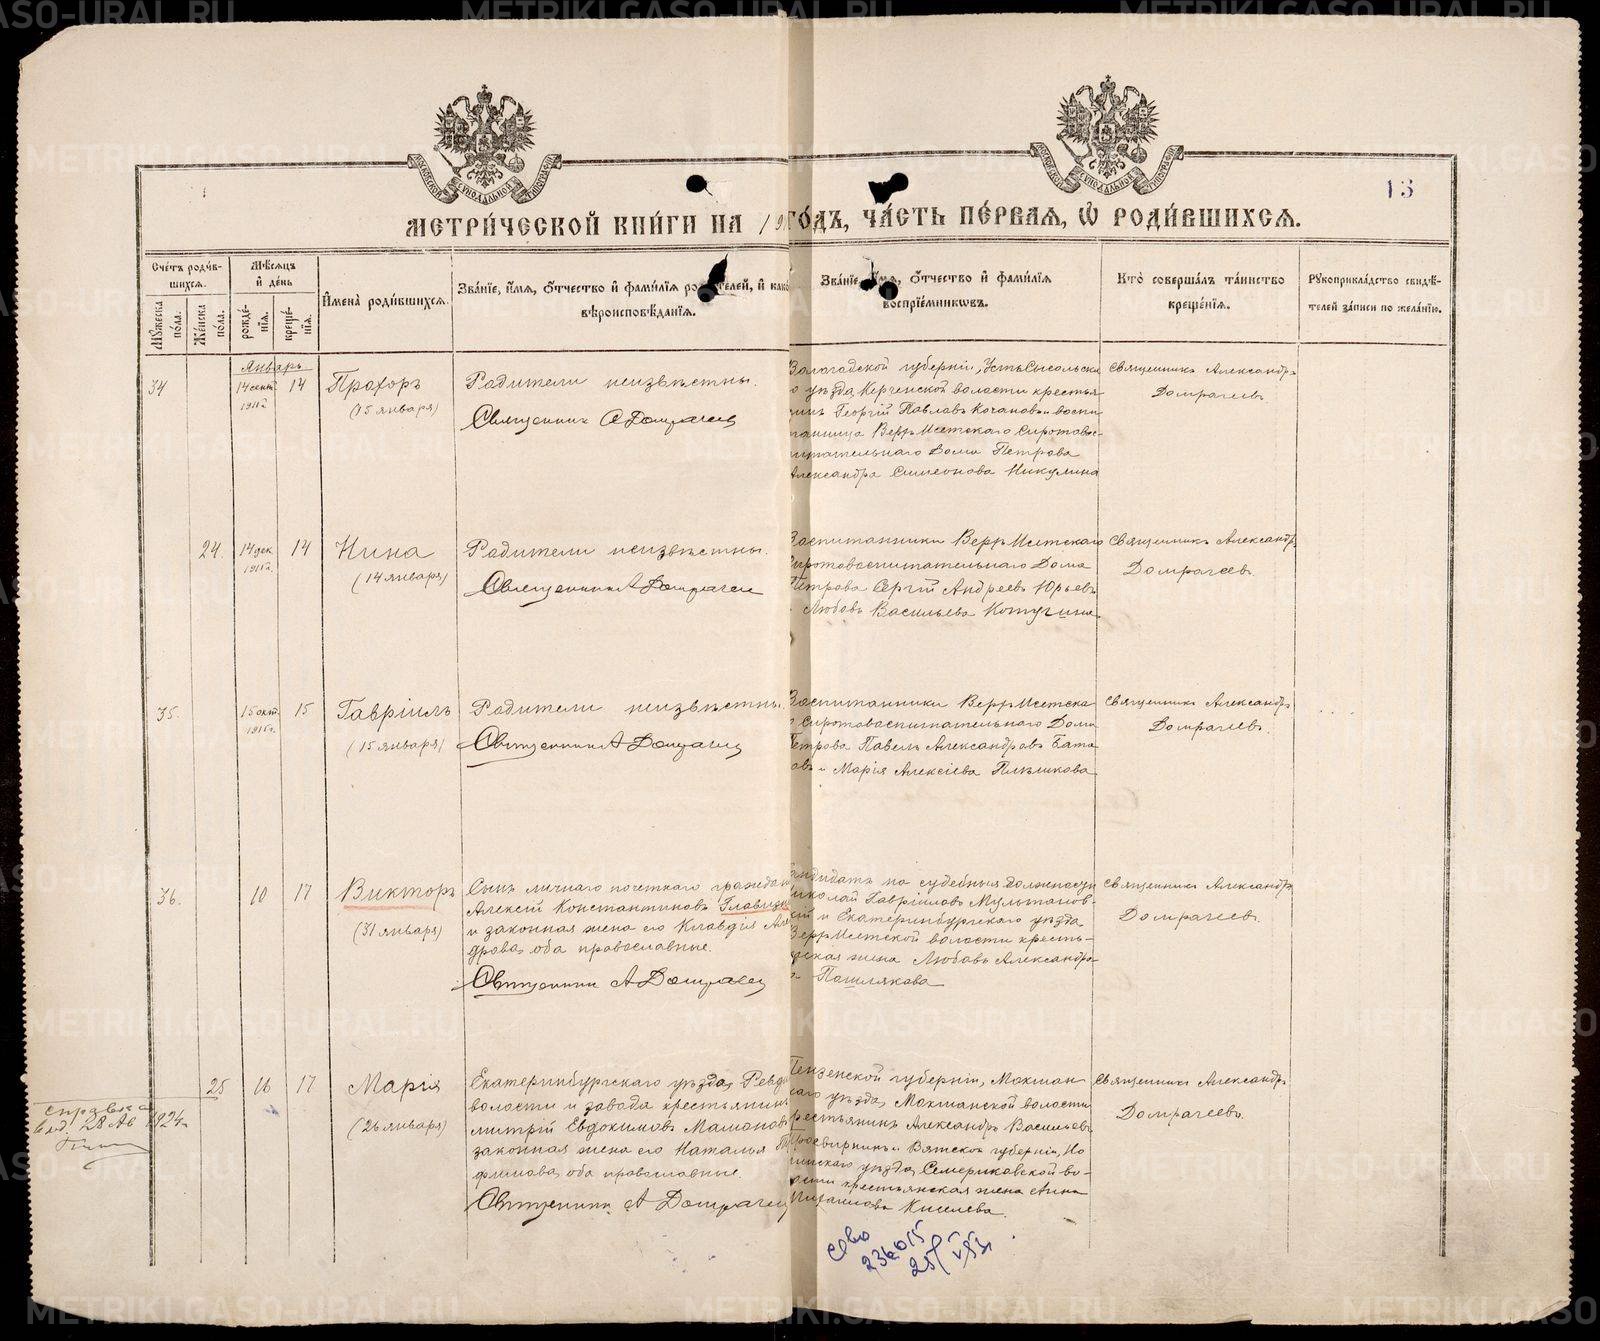 13
МЕТРИ́ЧЕСКОЙ КНИ́ГИ НА 19 ГО́ДЪ, ЧА́СТЬ ПЕ́РВАѦ, Ѽ РОДИ́ВШИХСѦ.
Сче́тъ роди́в-
шихсѧ.
Мѣ́сѧцъ
и҆ де́нь
Мꙋ́жеска по́ла.
Же́нска по́ла.
рожде́-
нїѧ.
креще́-
нїѧ.
И҆мена̀ роди́вшихсѧ.
Зва́нїе, и҆́мѧ, ѻ҆́тчество и҆ фами́лїѧ роди́телей, и҆ како́
вѣроисповѣ́данїѧ.
Зва́нїе, и҆́мѧ, ѻ҆́тчество и҆ фами́лїѧ
воспрїе́мникѡвъ.
Кто̀ соверша́лъ та́инство
креще́нїѧ.
Рꙋкоприкла́дство свидѣ́-
телей за́писи по жела́нїю.
Январь
34
14 сент.
1911г.
14
Прохоръ
(15 января)
Родители неизвѣстны.
Священник А Домрачев
Вологодской губерніи, Устьсысольска
уѣзда Керченской волости крестья
Георгій Павловъ Кочановъ и воспи
танница Верхъ Исетскаго Сиротовос-
питательнаго Дома Петрова
Александра Симеонова Никулина
Священникъ Александръ
Домрачеевъ
24.
14 дек.
1911г.
14
Нина
(14 января)
Родители неизвѣстны.
Священник А Домрачев
Воспитанники Верхъ Исетскаго
Сиротовоспитательнаго Дома
Петрова Сергій Андреевъ Юрьевъ
Любовь Васильева Котугина
Священникъ Александръ
Домрачеевъ.
35.
15 окт.
1911г.
15
Гавріилъ
(15 января)
Родители неизвѣстны
Священник А Домрачев
Воспитанники Верхъ Исетска
Сиротовоспитательнаго Дома
Петрова Павелъ Александровъ Бата
овъ и Марія Алексіева Плешкова
Священникъ Александръ
Домрачеевъ.
36.
10
17
Викторъ
(31 января)
Сынъ личнаго почетнаго граждан
Алексій Константиновъ
и законная жена его Клавдія Але
дрова, оба православные.
Священник А Домрачев
кандидатъ на судебныя должности
Николай Гавріиловъ Мультанов-
скій и Екатеринбургскаго уѣзда
Верхъ Исетской волости кресть-
янская жена Любовь Александро
Пошлякова
Священникъ Александръ
Домрачеевъ.
25
16
17
Марія
(26 января)
Екатеринбургскаго уѣзда, Ревди
волости и завода крестьянинъ
митрій Евдокимовъ Мамоновъ
законная жена его Наталья
фимова, оба православные.
Священник А Домрачев
Пензенской губерніи, Мокшан
скаго уѣзда, Мокшанской волости
крестьянинъ Александръ Васильевъ
Просвирнинъ и Вятской губерніи, Но
линскаго уѣзда, Семериковской во-
лости крестьянская жена Анна
Михаилова Киселева.
Священникъ Александръ
Домрачеевъ.
справка
выд. 28 Ав 1924г.
св-во